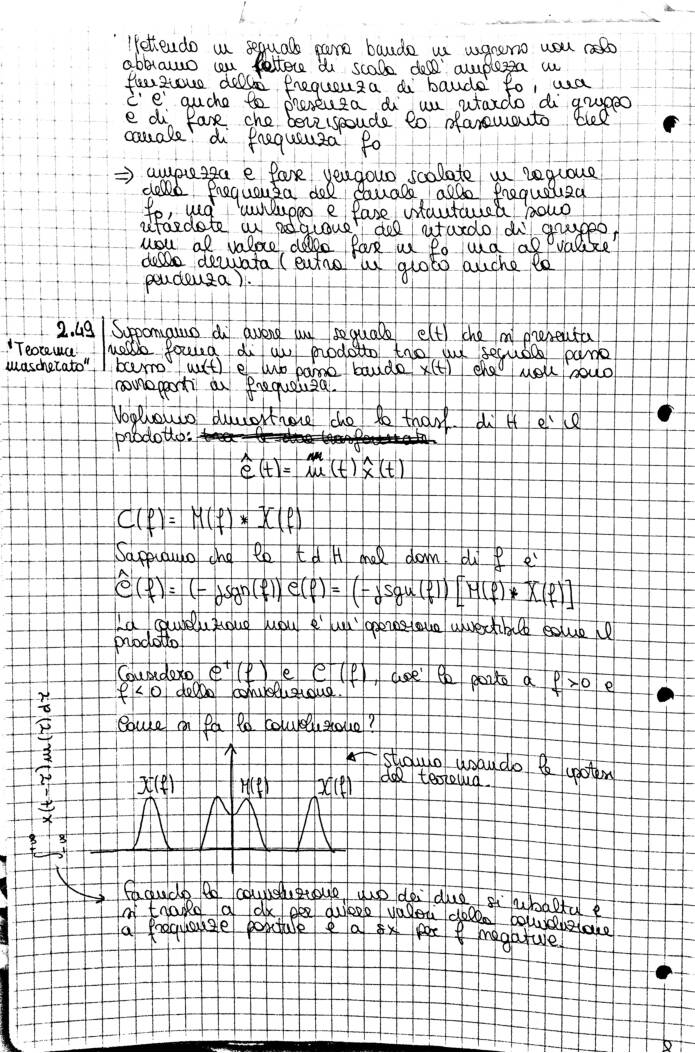 Mettendo un segnale passa banda in ingresso non solo
abbiamo un fattore di scala dell'ampiezza in
funzione della frequenza di banda f0, ma
c'e' anche la presenza di un ritardo di gruppo
e di fase che corrisponde lo sfasamento del
canale di frequenza f0
⇒ ampiezza e fase vengono scalate in ragione
della frequenza del canale alla frequenza
f0, ma inviluppo e fase istantanea sono
ritardate in ragione del ritardo di gruppo,
non al valore della fase in f0 ma al valore
della derivata (entra in gioco anche la
pendenza).
2.49 Supponiamo di avere un segnale c(t) che si presenta
"Teorema nella forma di un prodotto tra un segnale passa
mascherato" basso m(t) e uno passa banda x(t) che non sono
sovrapposti in frequenza.
Vogliamo dimostrare che la trasf. di H e' il
prodotto:
ĉ(t) = m(t) x̂(t)
C(f) = M(f) * X(f)
Sappiamo che la t d H nel dom. di f e'
Ĉ(f) = (-jsgn(f)) C(f) = (-jsgn(f)) [M(f) * X(f)]
La convoluzione non e' un'operazione invertibile come il
prodotto.
Considero C⁺(f) e C⁻(f), cioe' la parte a f>0 e
f<0 della convoluzione.
Come si fa la convoluzione?
← stiamo usando le ipotesi
del teorema.
X(f) M(f) X(f)
∫_{-∞}^{+∞} x(t-τ) m(τ) dτ
Facendo la convoluzione, uno dei due si ribalta e
si trasla a dx per avere valori della convoluzione
a frequenze positive e a sx per f negative.